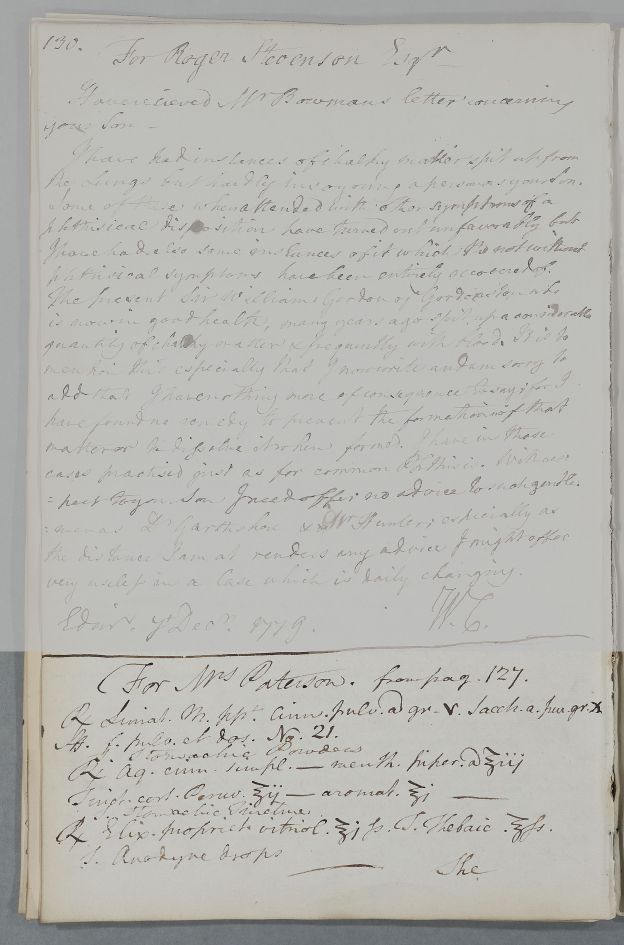 130.
For Roger Stevenson Esqr
I have recieved Mr Bowmans letter concerning
your Son -
I have had instances of chalky matter spit up from
the Lungs but hardly in so young a person as your Son.
Some of these when attended with other symptoms of a
phthisical disposition have turned out unfavorably but
I have had also some instances of it which tho not without
phthisical symptoms have been entirely recovered of.
The present Sir William Gordon of Gordonston who
is now in good health, many years ago spit up a considerable
quantity of chalky matter & frequently with blood. It is to
mention this especially that I now write and am sorry to
add that I have nothing more of consequence to say; for I
have found no remedy to prevent the formation of that
matter or to dissolve it when formed. I have in those
cases practised just as for common Phthisis. With res:
=pect to your Son I need offer no advice to such gentle:
=men as Dr Garthshore & Mr Hunter; especially as
the distance I am at renders any advice I might offer
very useless in a Case which is daily changing.
Edinr. 7 Decr. 1779. W.C.
For Mrs Paterson. from pag. 127.
℞ Limat. M. ppt. Cinn. pulv. a gr. v. Sacch. a. pur. gr. x
M. f. pulv. et dos. No. 21.
Stomachic Powders
℞ Aq. cinn. simpl. — menth. piper. a ℥iij
Tinct. cort. Peruv. ℥ij — aromat. ℥j —
S. Stomachic Tincture
℞ Elix. propriet. vitriol. ℥j ss. T. Thebaic. ℥ss.
S. Anodyne drops
She